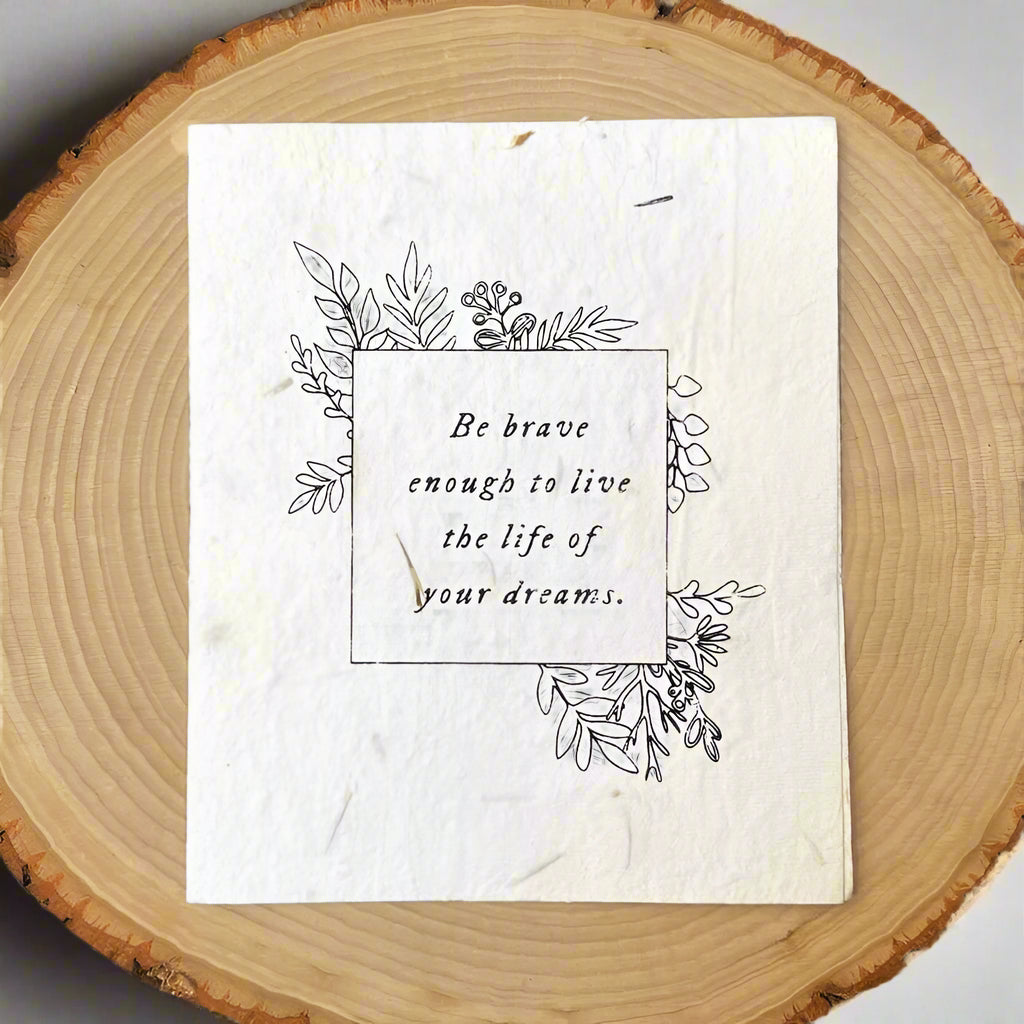 Be brave
enough to live
the life of
your dreams.